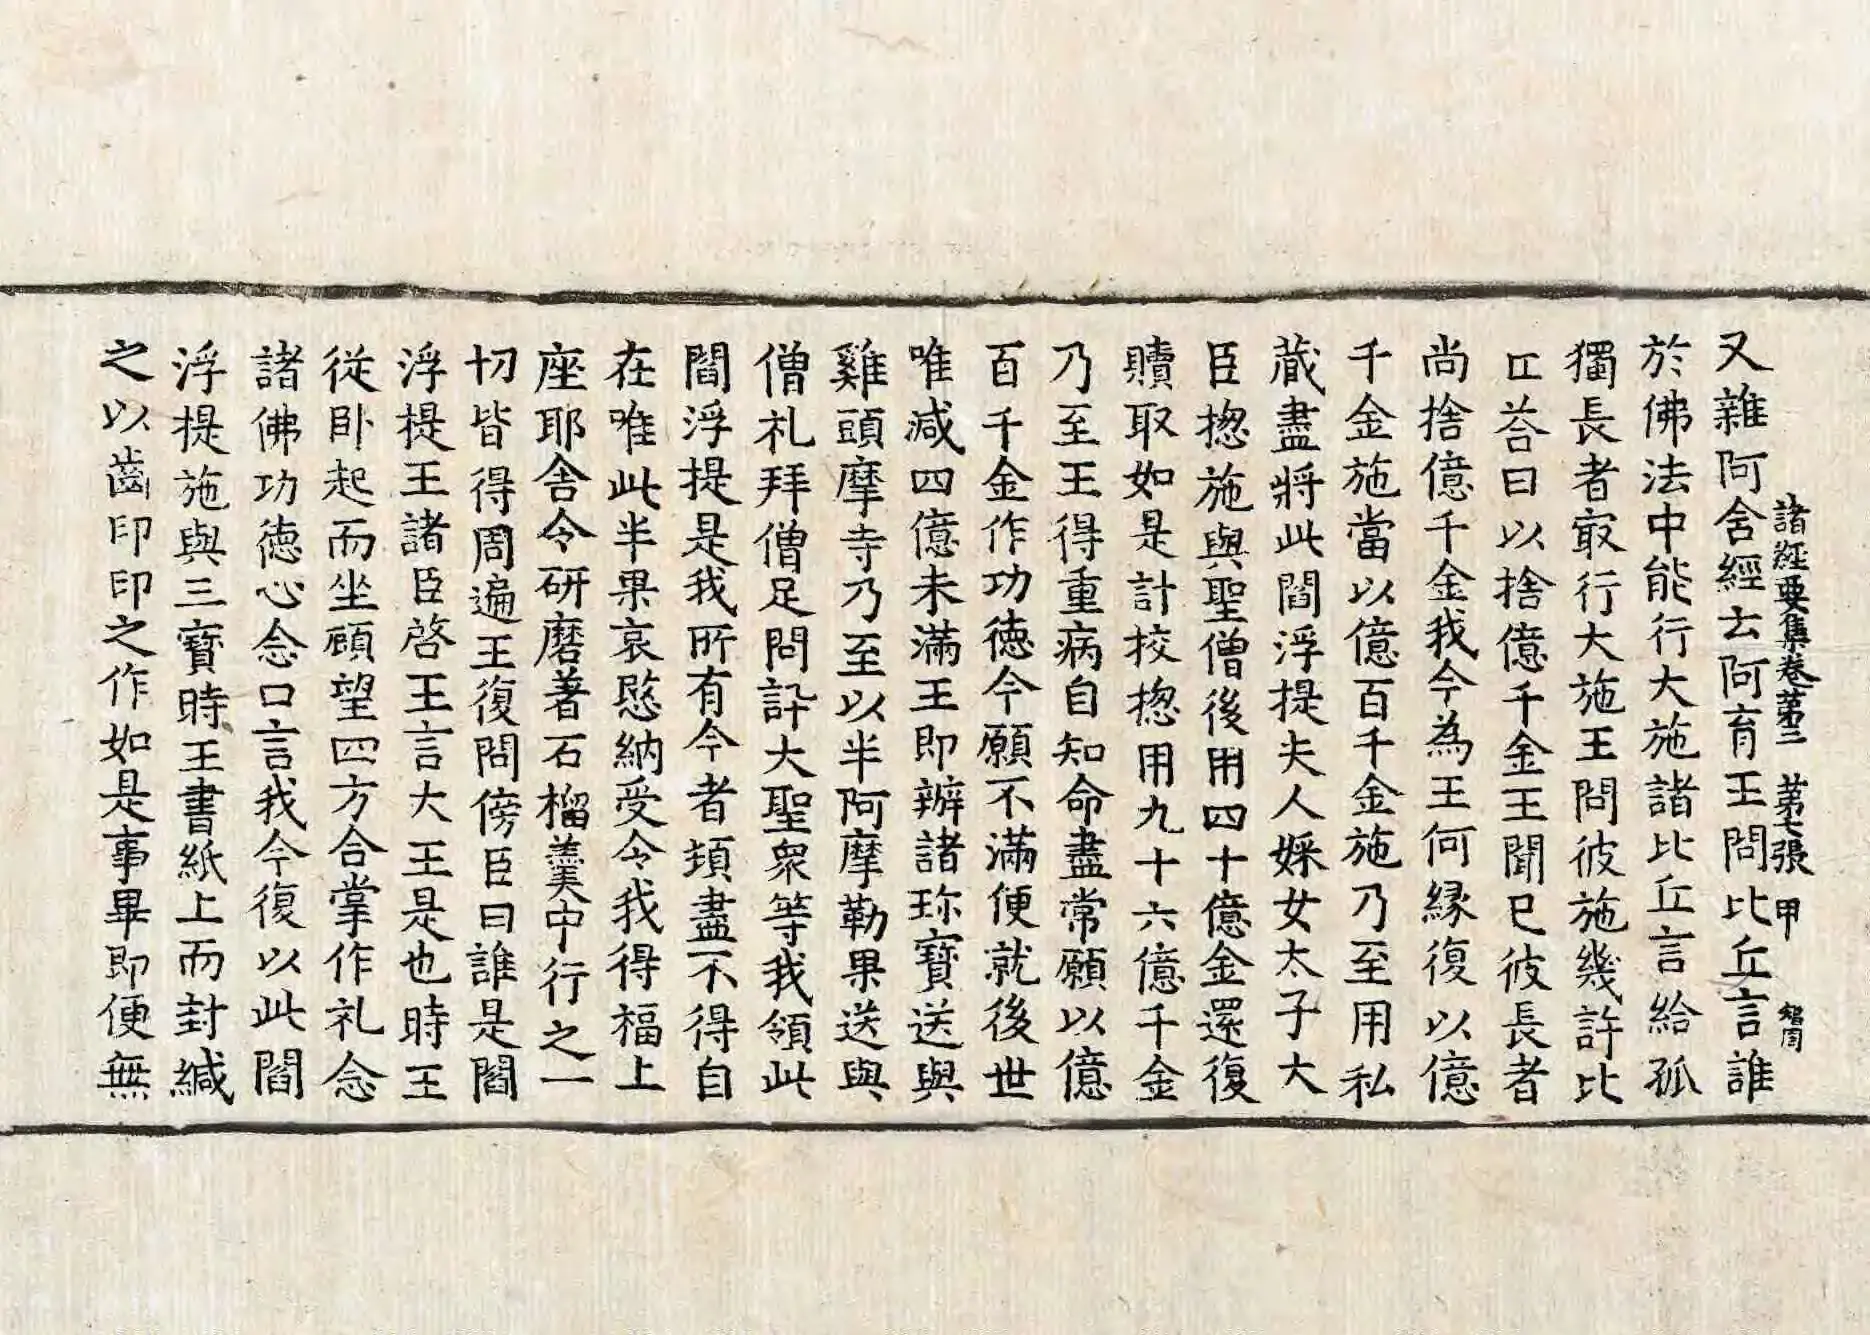 諸經要集卷第二 第七張 甲
又雜阿含經云阿育王問比丘言誰
於佛法中能行大施諸比丘言給孤
獨長者㝡行大施王問彼施幾許比
丘荅曰以捨億千金王聞已彼長者
尚捨億千金我今為王何縁復以億
千金施當以億百千金施乃至用私
藏盡將此閻浮提夫人婇女太子大
臣揔施與聖僧後用四十億金還復
贖取如是計挍揔用九十六億千金
乃至王得重病自知命盡常願以億
百千金作功德今願不滿便就後世
唯減四億未滿王即辦諸珎寶送與
雞頭摩寺乃至以半阿摩勒果送與
僧礼拜僧足問訊大聖衆等我領此
閻浮提是我所有今者頓盡不得自
在唯此半果哀愍納受令我得福上
座耶舍令研磨著石榴羹中行之一
切皆得周遍王復問傍臣曰誰是閻
浮提王諸臣啓王言大王是也時王
從卧起而坐顧望四方合掌作礼念
諸佛功德心念口言我今復以此閻
浮提施與三寶時王書紙上而封緘
之以齒印印之作如是事畢即便無